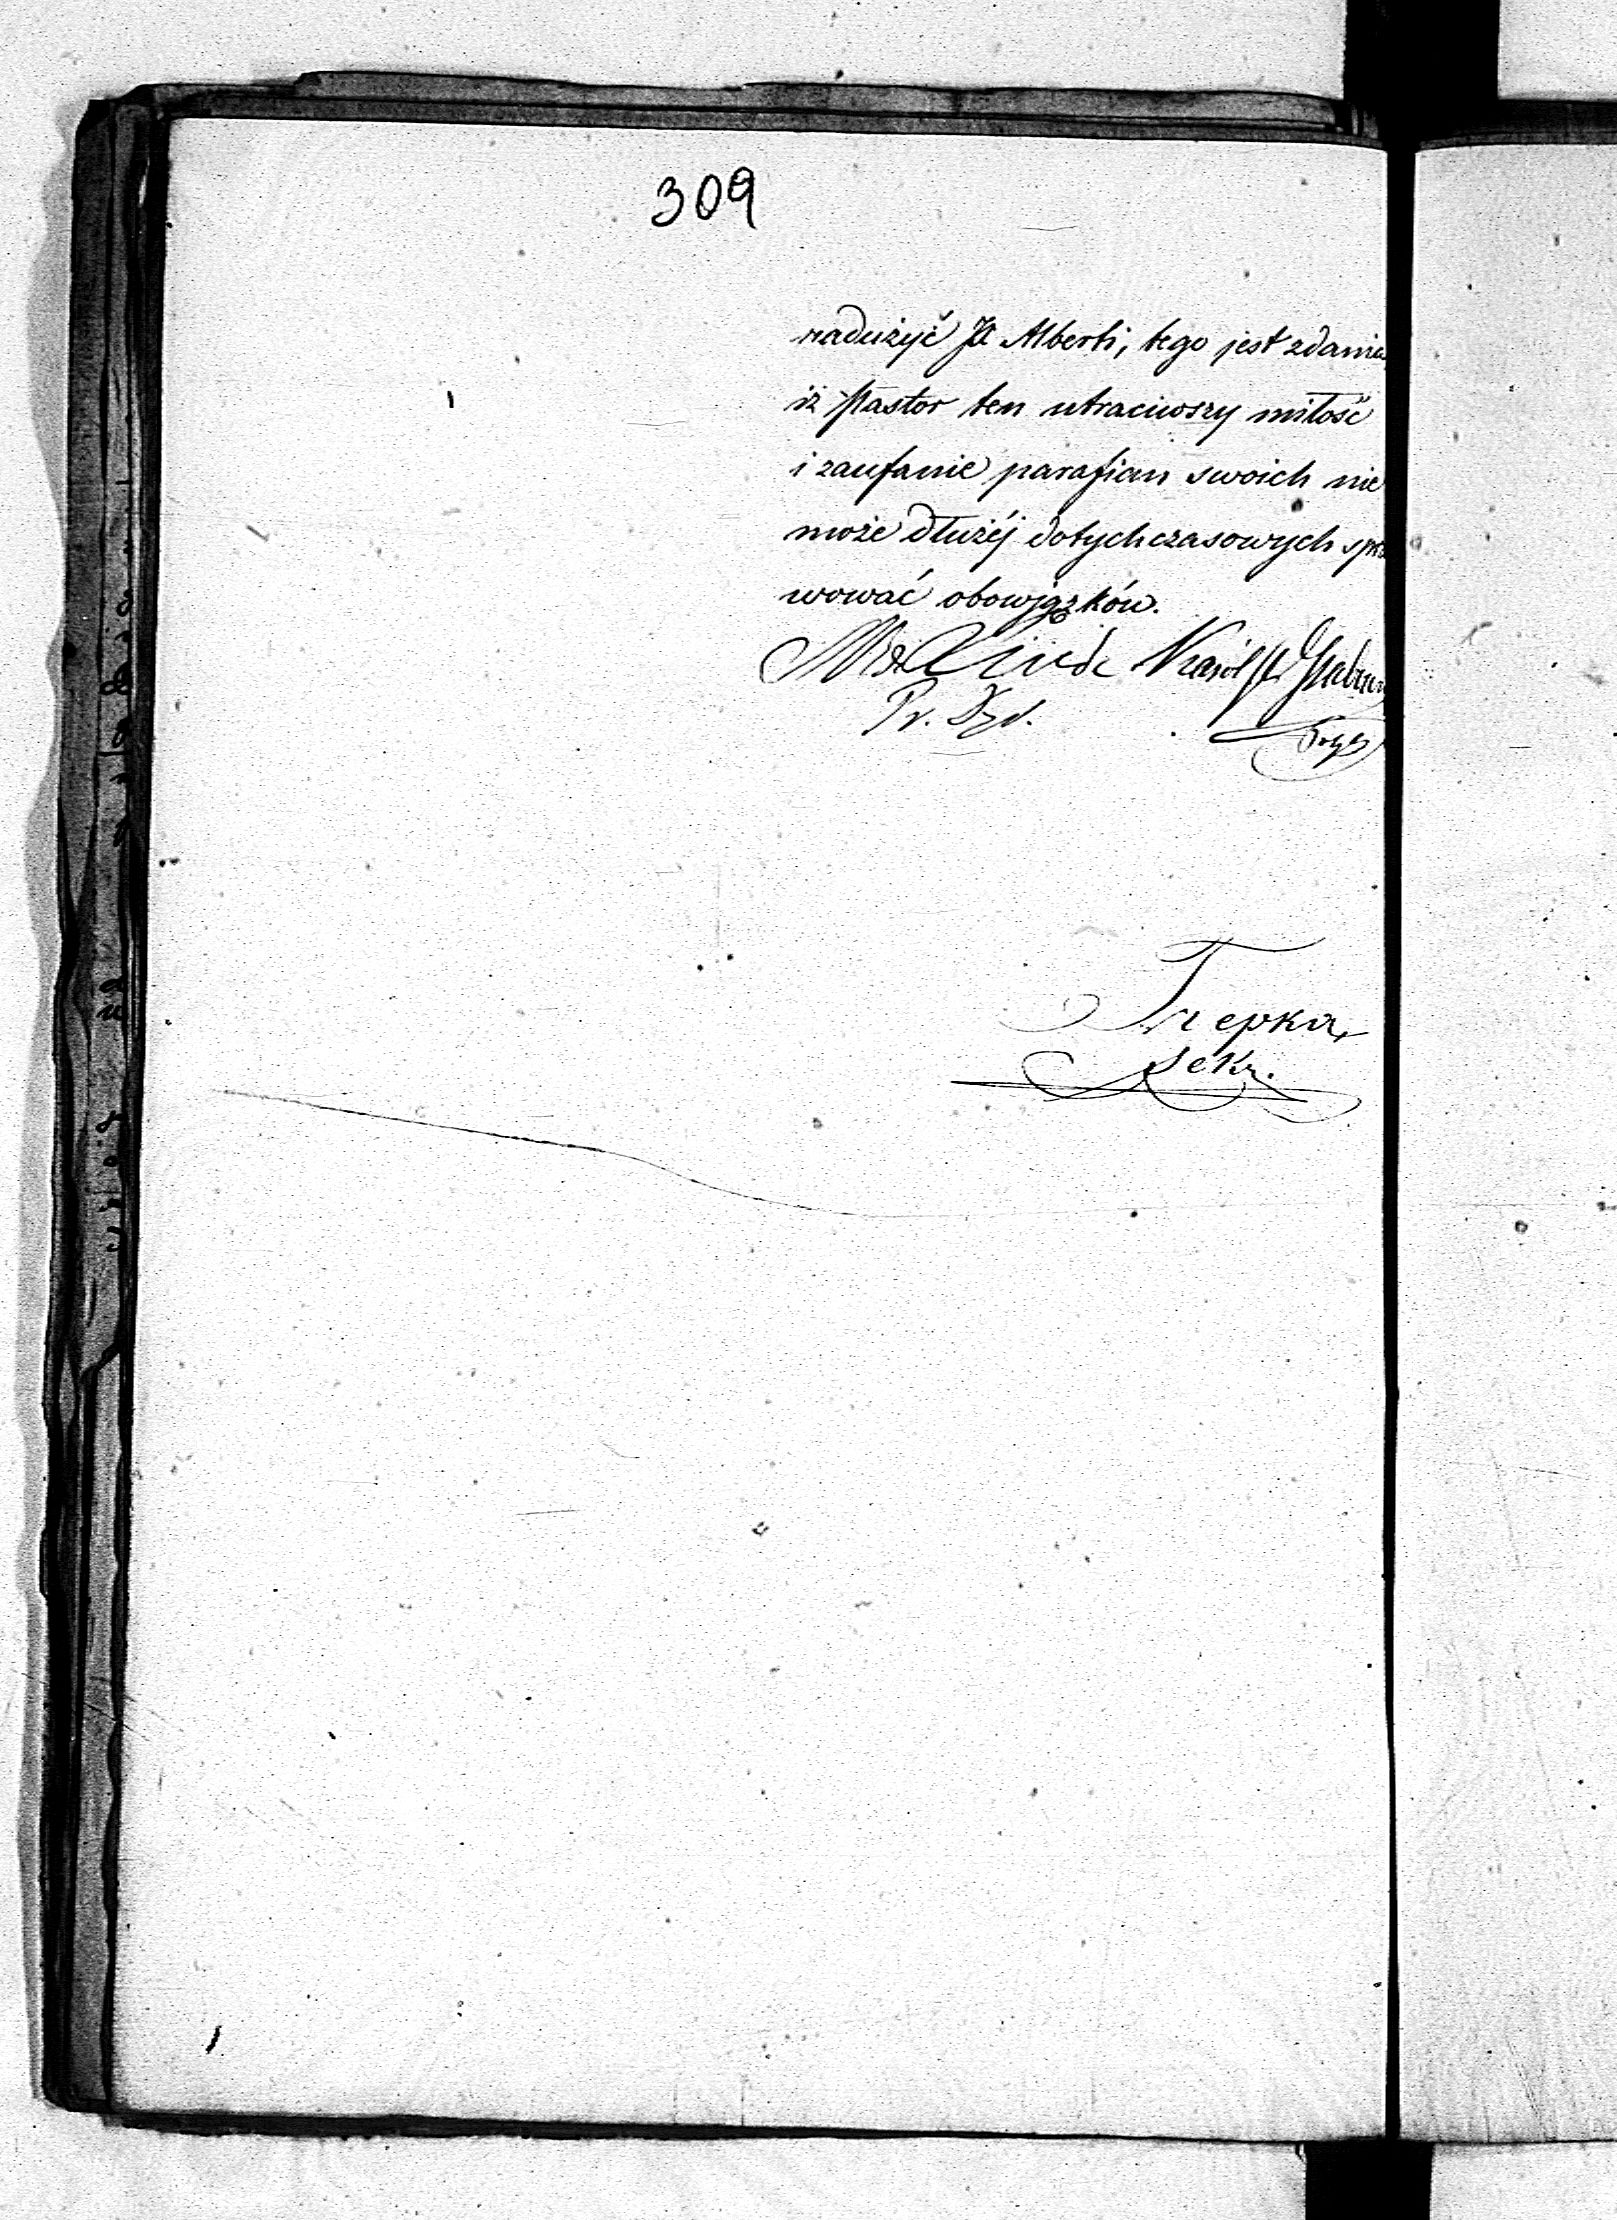 309
nadużyć JX Alberti, tego jest zdania,
iż Pastor ten utraciwszy miłość
i zaufanie parafian swoich nie
może dłużéj dotychczasowych spra
wować obowjązków.
Linde Karól
Pr.
Trepka
Sekr.